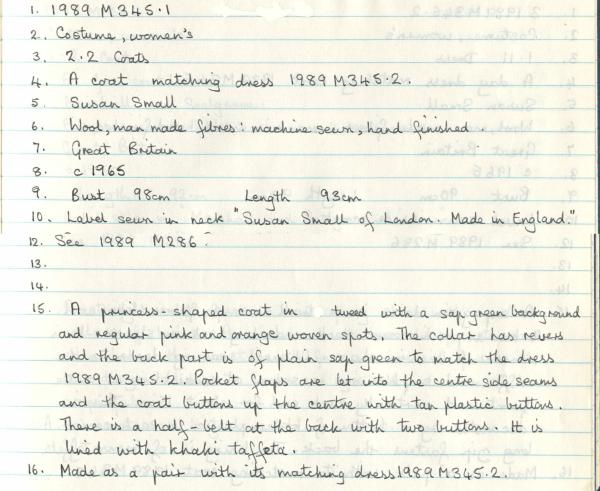 1. 1989 M345.1
2. Costume, women's
3. 2.2 Coats
4. A coat matching dress 1989 M345.2.
5. Susan Small
6. Wool, man made fibres: machine sewn, hand finished.
7. Great Britain
8. c 1965
9. Bust 98cm Length 93cm
10. Label sewn in neck "Susan Small of London. Made in England."
12. See 1989 M286
13.
14.
15. A princess-shaped coat in tweed with a sap green background
and regular pink and orange woven spots. The collar has revers
and the back part is of plain sap green to match the dress
1989 M345.2. Pocket flaps are let into the centre side seams
and the coat buttons up the centre with tan plastic buttons.
There is a half-belt at the back with two buttons. It is
lined with khaki taffeta.
16. Made as a pair with its matching dress 1989 M345.2.